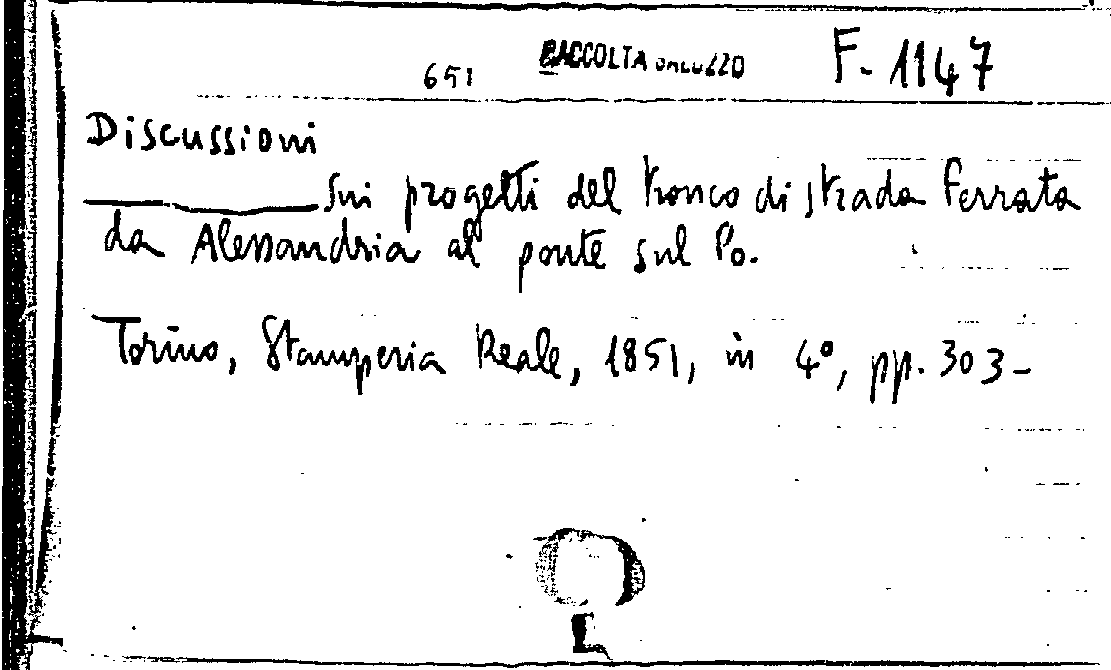 651 RACCOLTA GALLUZZO F. 1147
Discussioni
______ sui progetti del tronco di strada ferrata
da Alessandria al ponte sul Po.
Torino, Stamperia Reale, 1851, in 4º, pp. 303-